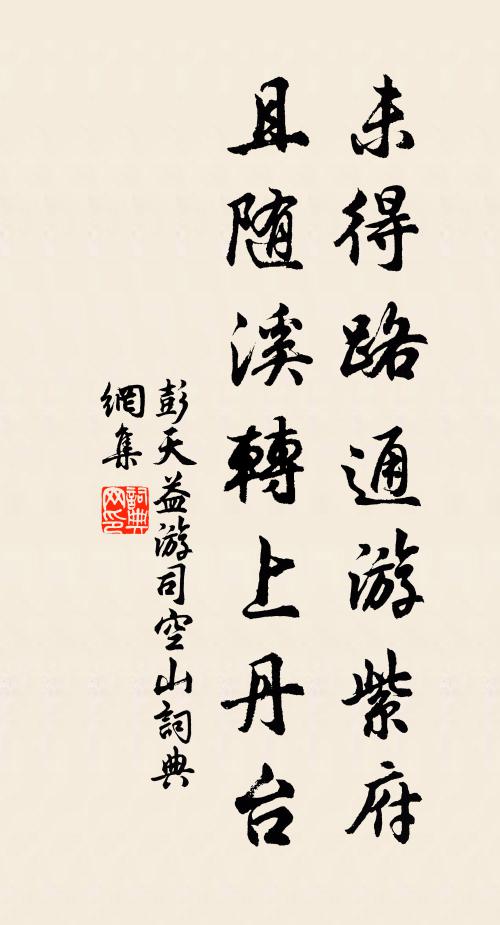 未得路通游紫府
且随溪轉上丹台
彭天益游司空山詞典
網集
詞典
网印